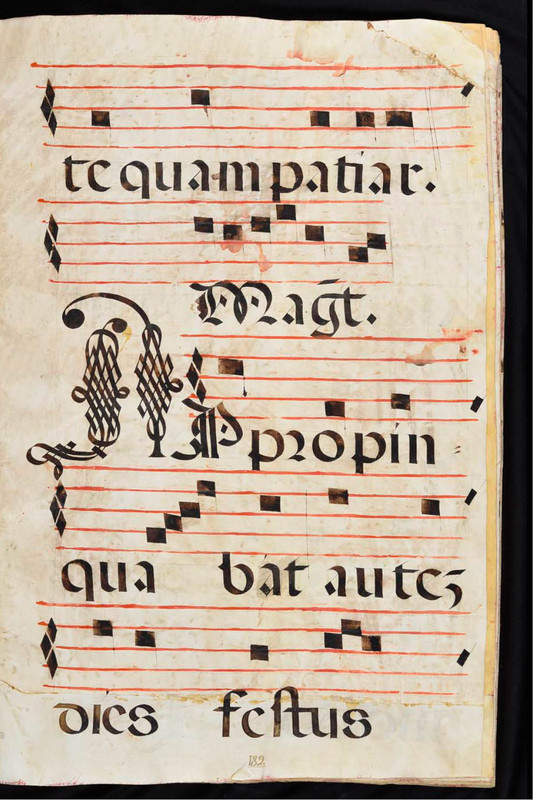 te quam patiar.
Mag̃t.
Appropin
qua bat auteʒ
dies festus
182